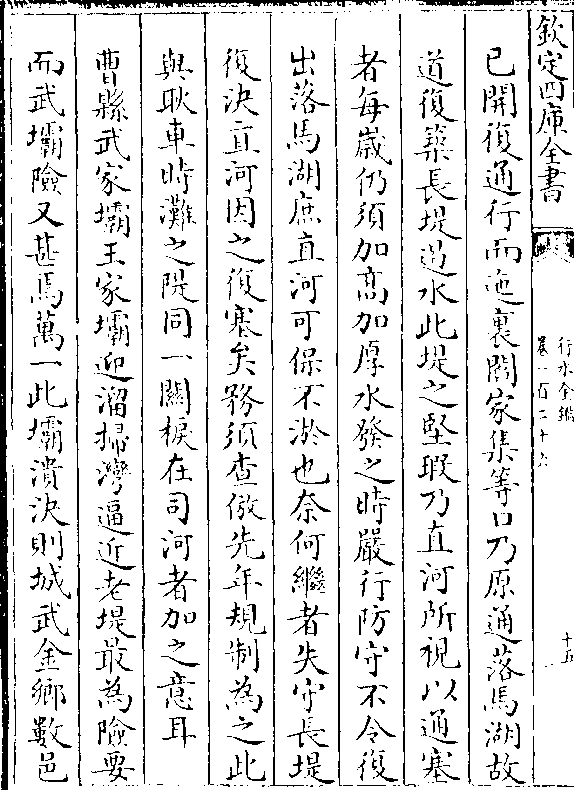 欽定四庫全書
行水金鑑
卷一百二十六
十五
已開復通行而迤裏闗家集等口乃原通落馬湖故
道復築長堤遏水此堤之堅瑕乃直河所視以通塞
者每嵗仍須加髙加厚水發之時嚴行防守不令復
出落馬湖庶直河可保不淤也奈何繼者失守長堤
復決直河因之復塞矣務須查倣先年規制為之此
與耿車時灘之隄同一關棙在司河者加之意耳
曹縣武家壩王家壩迎溜掃灣逼近老堤最為險要
而武壩險又甚焉萬一此壩潰決則城武金鄉數邑